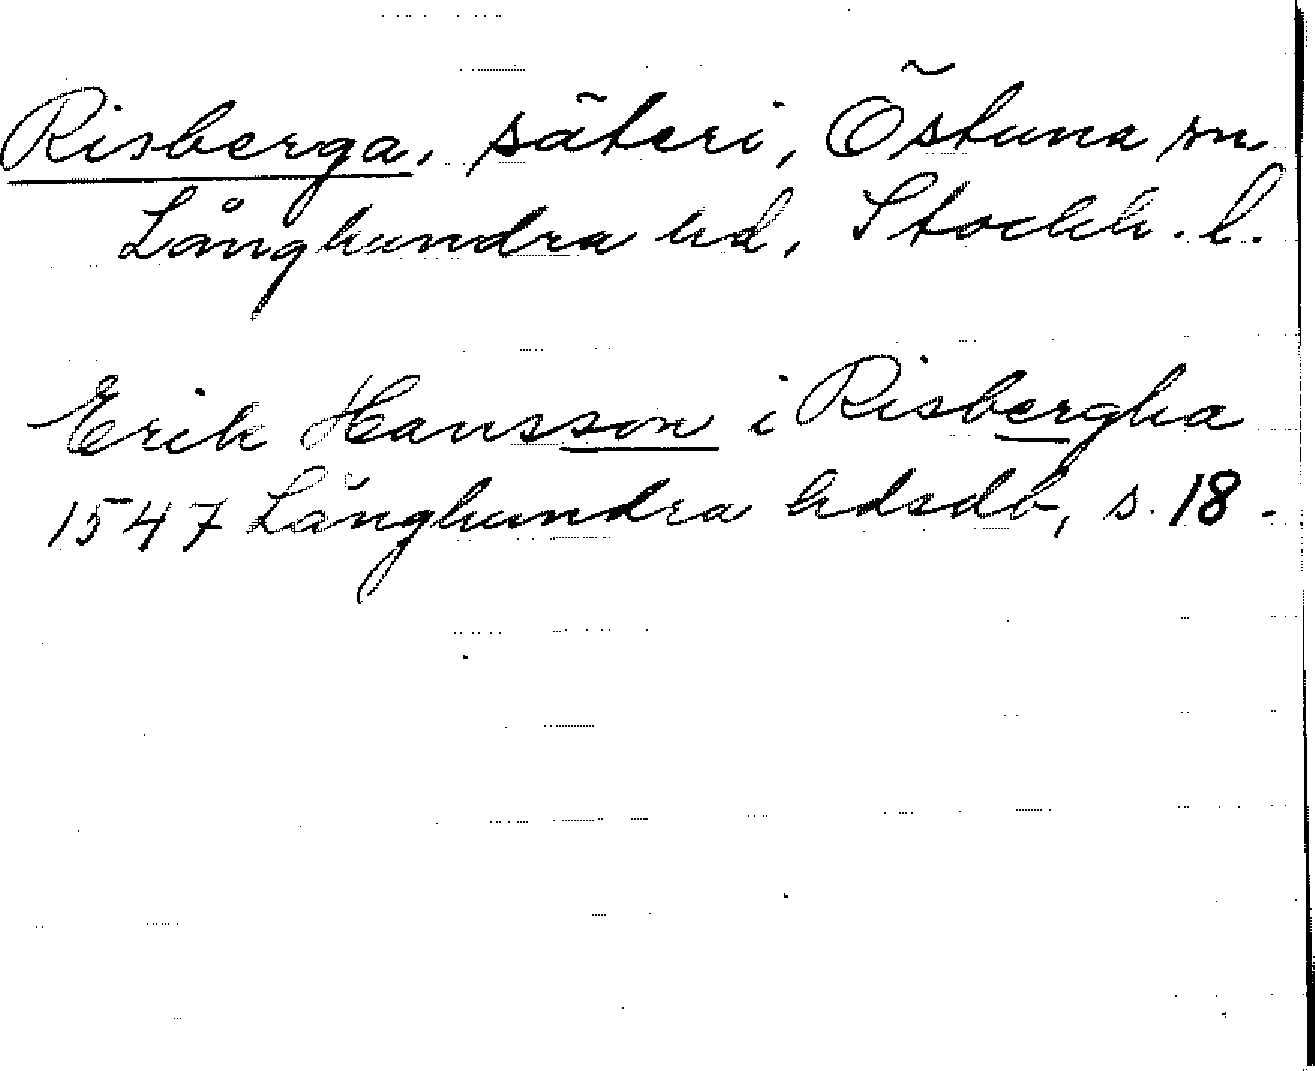 Risberga, säteri, Östuna sn
Långhundra hd, Stockh. l.
Erik Hansson i Risbergha
1547 Långhundra hdsdb, s. 18.